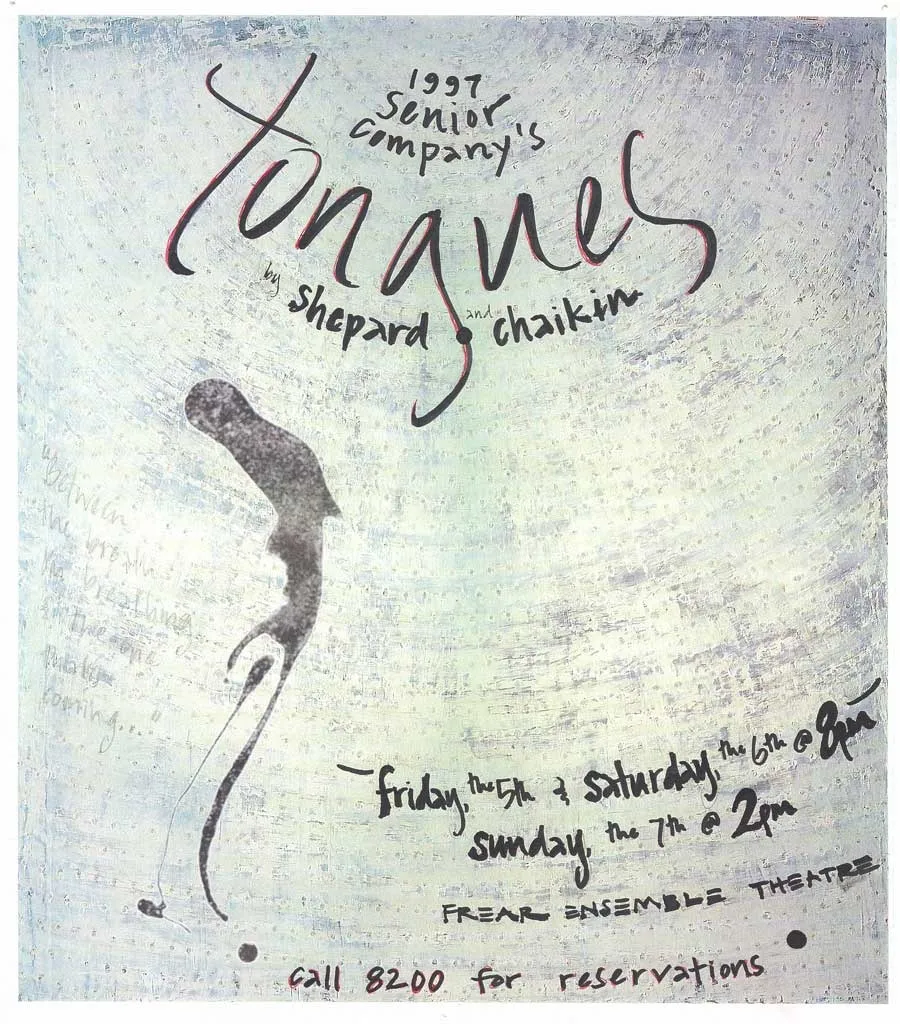 1997
Senior
Company's
Tongues
by Shepard and Chaikin
"between
the breath
the breathing
& the one
coming..."
friday, the 5th & saturday, the 6th @ 8pm
sunday, the 7th @ 2pm
FREAR ENSEMBLE THEATRE
call 8200 for reservations